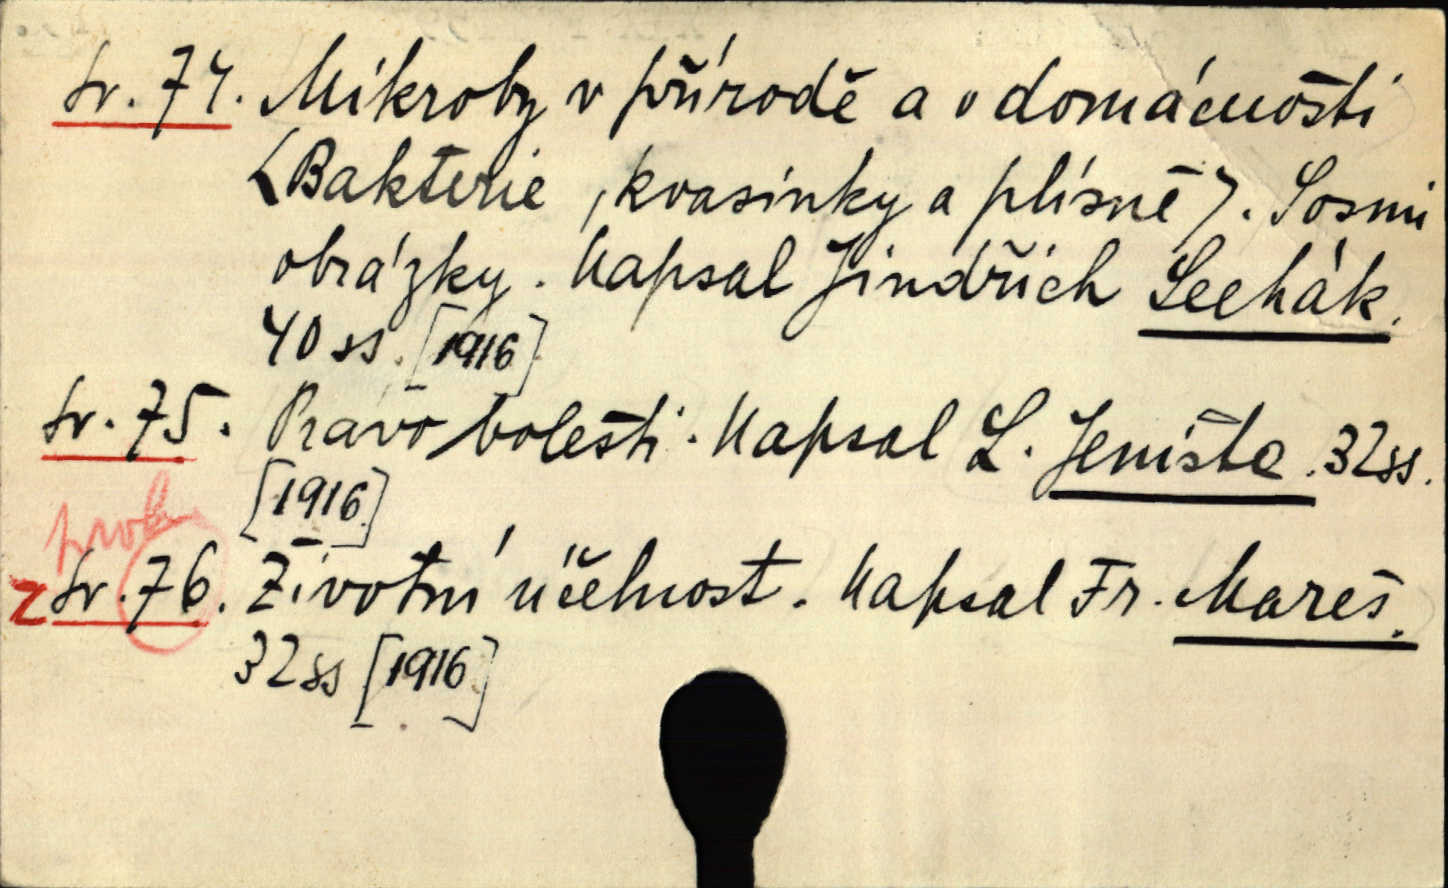 Sv. 74. Mikroby v přírodě a v domácnosti
(Bakterie, kvasinky a plísně). S osmi
obrázky. Napsal Jindřich Sechák.
40 ss. [1916]
Sv. 75. Právo bolesti. Napsal L. Jeništa. 32 ss.
[1916]
Z Sv. 76. Životní účelnost. Napsal Fr. Mareš.
32 ss [1916]